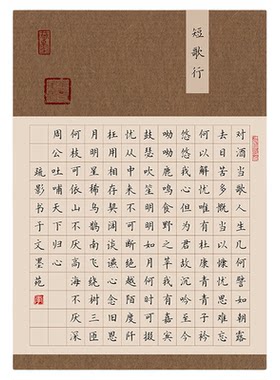 短歌行
对酒当歌人生几何譬如朝露
去日苦多慨当以慷忧思难忘
何以解忧唯有杜康青青子衿
悠悠我心但为君故沉吟至今
呦呦鹿鸣食野之苹我有嘉宾
鼓瑟吹笙明明如月何时可掇
忧从中来不可断绝越陌度阡
枉用相存契阔谈讌心念旧恩
月明星稀乌鹊南飞绕树三匝
何枝可依山不厌高海不厌深
周公吐哺天下归心
疏影书于文墨苑